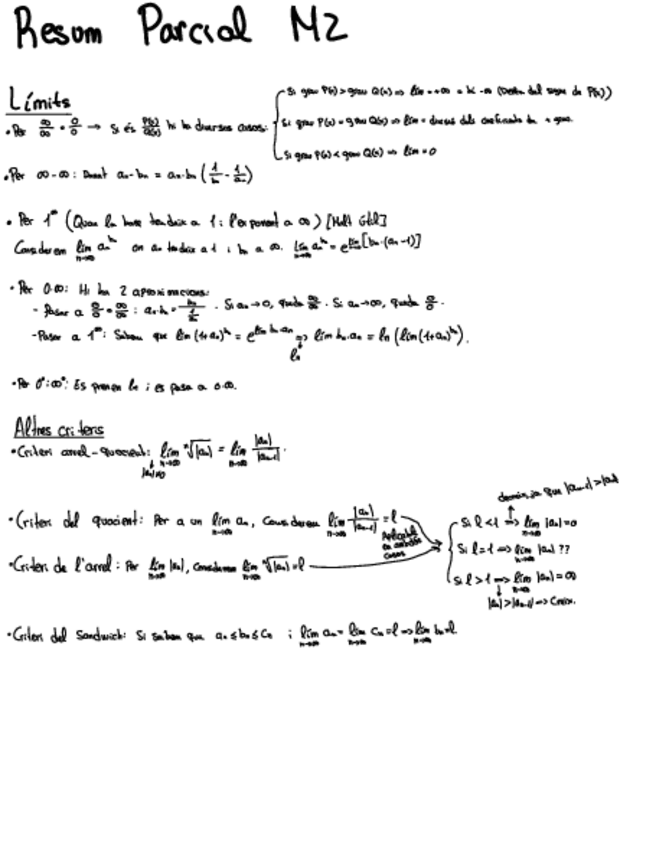 Resum Parcial M2
Límits
• Per ∞/∞ o 0/0 → Si és P(x)/Q(x) hi ha diversos casos:
Si grau P(x) > grau Q(x) => lim = +∞ o -∞ del signe de P(x))
Si grau P(x) = grau Q(x) => lim = dels coeficients de + grau.
Si grau P(x) < grau Q(x) => lim = 0
• Per ∞-∞: Donat an - bn = an·bn (1/bn - 1/an)
• Per 1^∞ (Quan la base tendeix a 1 i l'exponent a ∞) [Molt útil]
Considerem lim n→∞ an^bn on an tendeix a 1 i bn a ∞. lim n→∞ an^bn = e^lim n→∞ [bn·(an-1)]
• Per 0·∞: Hi ha 2 aproximacions:
- Passar a 0/0 o ∞/∞: an·bn = bn/(1/an). Si an→0, queda ∞/∞. Si an→∞, queda 0/0.
- Passar a 1^∞: Sabem que lim (1+an)^bn = e^lim bn·an => lim bn·an = ln (lim (1+an)^bn).
ln
• Per 0^0 i ∞^0: Es prenen ln i es passa a 0·∞.
Altres criteris
• Criteri arrel-quocient: lim n→∞ ⁿ√|an| = lim n→∞ |an|/|an-1|.
|an|≠0
• Criteri del quocient: Per a un lim n→∞ an, considerem lim n→∞ |an|/|an-1| = l
Aplicable en ambdós casos
• Criteri de l'arrel: Per lim n→∞ |an|, considerem lim n→∞ ⁿ√|an| = l
ja que |an-1| > |an|
Si l < 1 => lim n→∞ |an| = 0
Si l = 1 => lim n→∞ |an| ??
Si l > 1 => lim n→∞ |an| = ∞
|an| > |an-1| => Creix.
• Criteri del Sandwich: Si sabem que an ≤ bn ≤ cn i lim n→∞ an = lim n→∞ cn = l => lim n→∞ bn = l